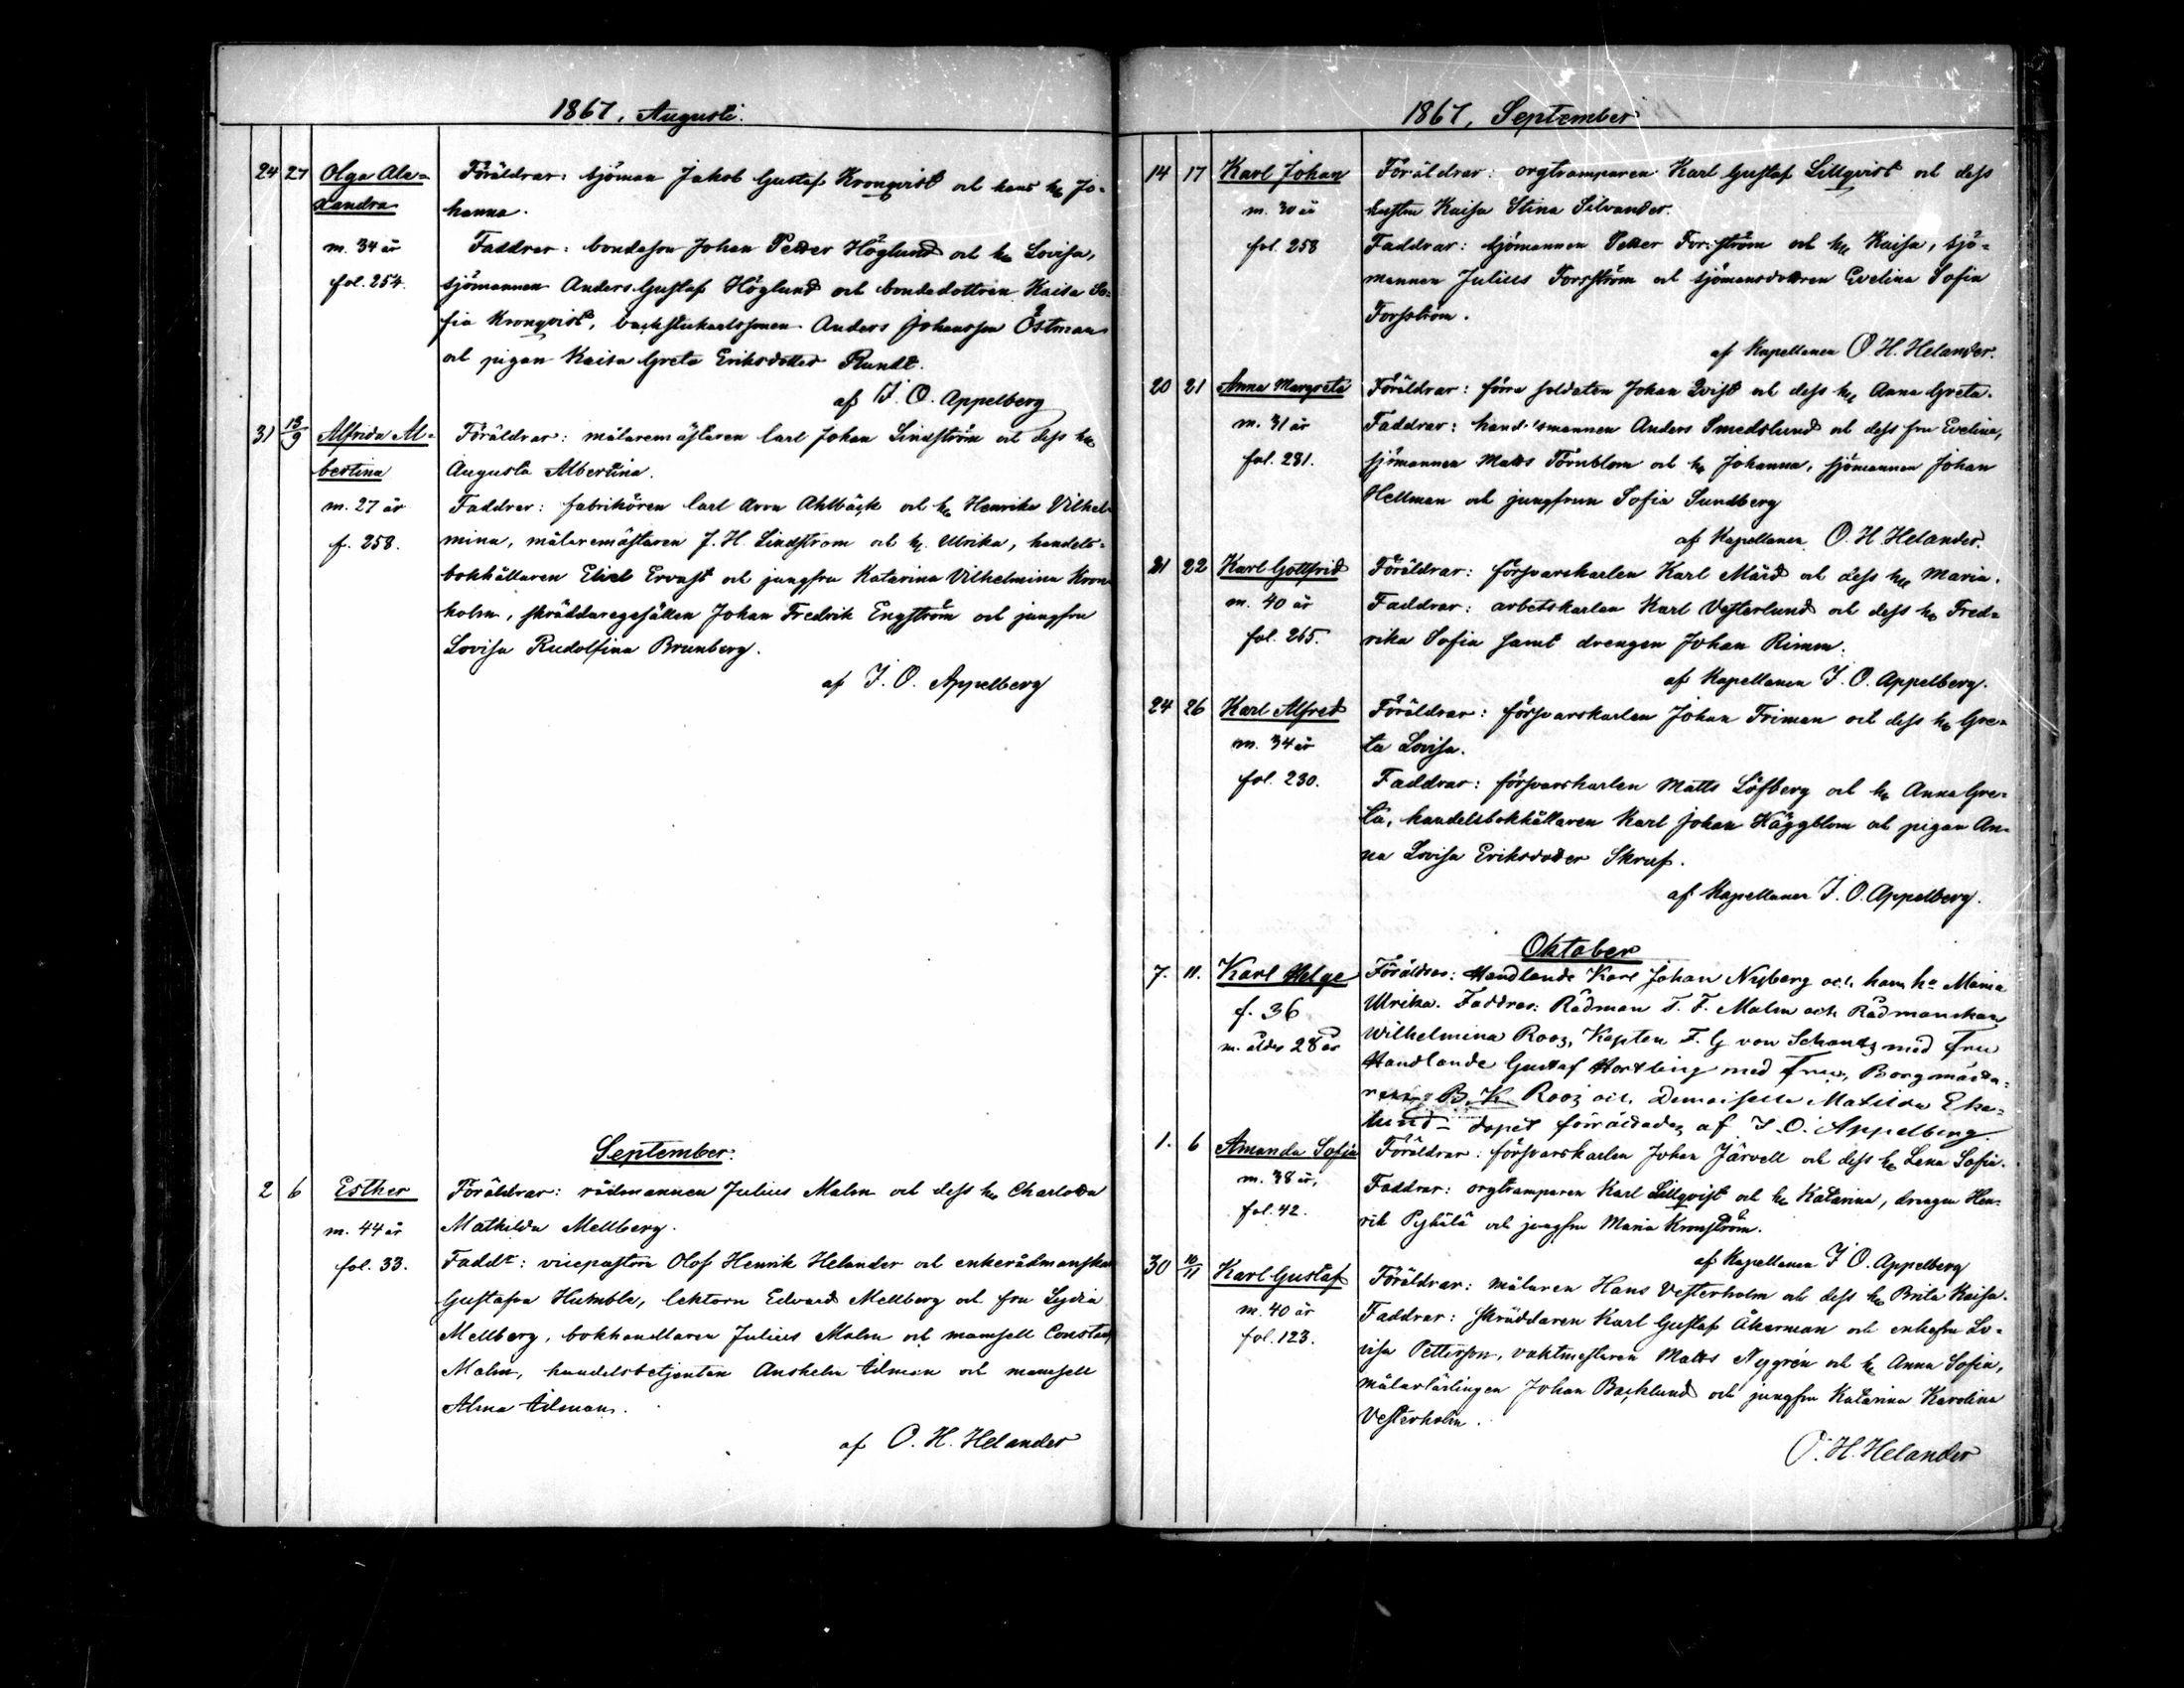 1867, Augusti.
24 27 Olga Ale- Föräldrar: sjöman Jakob Gustaf Kronqvist och hans h. Jo-
xandra hanna.
m. 34 år Faddrar: bondeson Johan Petter Höglund och h. Lovisa,
fol. 254. sjömannen Anders Gustaf Höglund och bondedottren Kaisa So-
fia Kronqvist, backstukarlssonen Anders Johansson Östman
och pigan Kaisa Greta Eriksdotter Rundt.
af J. O. Appelberg
31 13/9 Alfrida Al- Föräldrar: målaremästaren Carl Johan Lindström och dess h.
bertina Augusta Albertina.
m. 27 år Faddrar: fabrikören Carl Aron Ahlbäck och h. Henrika Vilhel-
f. 258. mina, målaremästaren J. H. Lindström och h. Ulrika, handels-
bokhållaren Eliel Ervast och jungfru Katarina Vilhelmina Kron-
holm, skräddaregesällen Johan Fredrik Engström och jungfru
Lovisa Rudolfina Brunberg.
af J. O. Appelberg
September.
2 6 Esther Föräldrar: rådmannen Julius Malm och dess h. Charlotta
m. 44 år Mathilda Mellberg.
fol. 33. Faddr: vicepastorn Olof Henrik Helander och enkerådmanskan
Gustafva Humble, lektorn Edvard Mellberg och fru Lydia
Mellberg, bokhandlaren Julius Malm och mamsell Constance
Malm, handelsbetjenten Anshelm Ådman och mamsell
Alma Ådman.
af O. H. Helander
1867, September
14 17 Karl Johan Föräldrar: orgtramparen Karl Gustaf Lillqvist och dess
m. 30 år hustru Kaisa Stina Silvander.
fol. 258 Faddrar: sjömannen Petter Forsström och h. Kaisa, sjö-
mannen Julius Forsström och sjömansdottren Evelina Sofia
Forsström.
af Kapellanen O. H. Helander.
20 21 Anna Margreta Föräldrar: förra soldaten Johan Qvist och dess h. Anna Greta.
m. 31 år Faddrar: handelsmannen Anders Smedslund och dess fru Evelina,
fol. 281. sjömannen Matts Törnblom och h. Johanna, sjömannen Johan
Hellman och jungfrun Sofia Sundberg
af Kapellanen O. H. Helander.
21 22 Karl Gottfrid Föräldrar: försvarskarlen Karl Mård och dess h. Maria.
m. 40 år Faddrar: arbetskarlen Karl Vesterlund och dess h. Fred-
fol. 265. rika Sofia samt drengen Johan Rimm.
af Kapellanen J. O. Appelberg.
24 26 Karl Alfred Föräldrar: försvarskarlen Johan Friman och dess h. Gre-
m. 34 år ta Lovisa.
fol. 230. Faddrar: försvarskarlen Matts Löfberg och h. Anna Gre-
ta, handelsbokhållaren Karl Johan Häggblom och pigan An-
na Lovisa Eriksdotter Skruf.
af Kapellanen J. O. Appelberg.
Oktober
7. 11. Karl Helge Föräldrar: Handlande Karl Johan Nyberg och hans h. Maria
f. 36 Ulrika. Faddrar: Rådman F. F. Malm och Rådmanskan
m. ålder 28 år Wilhelmina Roos, Kapten F. G von Schantz med Fru
Handlande Gustaf Hartling med Fru, Borgmästa-
B. K. Roos och Demoiselle Matilda Eke-
lund – dopet förrättades af J. O. Appelberg.
1. 6 Amanda Sofia Föräldrar: försvarskarlen Johan Järvell och dess h. Lena Sofia.
m. 38 år, Faddrar: orgtramparen Karl Lillqvist och h. Katarina, drengen Hen-
fol. 42. rik Pyhälä och jungfru Maria Kronström.
af Kapellanen J O. Appelberg
30 10/11 Karl Gustaf Föräldrar: målaren Hans Vesterholm och dess h. Brita Kaisa.
m. 40 år Faddrar: skräddaren Karl Gustaf Åkerman och enkefru Lo-
fol. 123. visa Petterson, vaktmestaren Matts Nygrén och h. Anna Sofia,
målarlärlingen Johan Backlund och jungfru Katarina Karolina
Vesterholm.
O. H. Helander